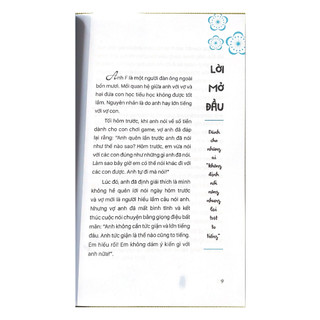 LỜI
MỞ
ĐẦU
Dành
cho
những
ai
"không
định
nổi
nóng
nhưng
lại
trót
to
tiếng"
Anh F là một người đàn ông ngoài
bốn mươi. Mối quan hệ giữa anh với vợ và
hai đứa con học tiểu học không được tốt
lắm. Nguyên nhân là do anh hay lớn tiếng
với vợ con.
Tối hôm trước, khi anh nói về số tiền
dành cho con chơi game, vợ anh đã đáp
lại rằng: "Anh quên lần trước anh đã nói
như thế nào sao? Hôm trước, em vừa nói
với các con đúng như những gì anh đã nói.
Làm sao bây giờ em có thể nói khác đi với
các con được. Anh tự đi mà nói!"
Lúc đó, anh đã định giải thích là mình
không hề quên lời nói ngày hôm trước
và vợ mới là người hiểu lầm câu nói anh.
Nhưng vợ anh đã mất bình tĩnh và kết
thúc cuộc nói chuyện bằng giọng điệu bất
mãn: "Anh không cần tức giận và lớn tiếng
đâu. Anh tức giận là thế nào cũng to tiếng.
Em hiểu rồi! Em không dám ý kiến gì với
anh nữa!".
9